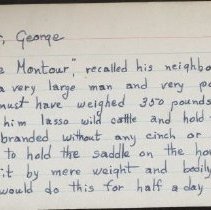 , George
e Montour", recalled his neighbo
a very large man and very po
must have weighed 350 pounds
him lasso wild cattle and hold
branded without any cinch or
to hold the saddle on the ho
it by mere weight and bodily
would do this for half a day